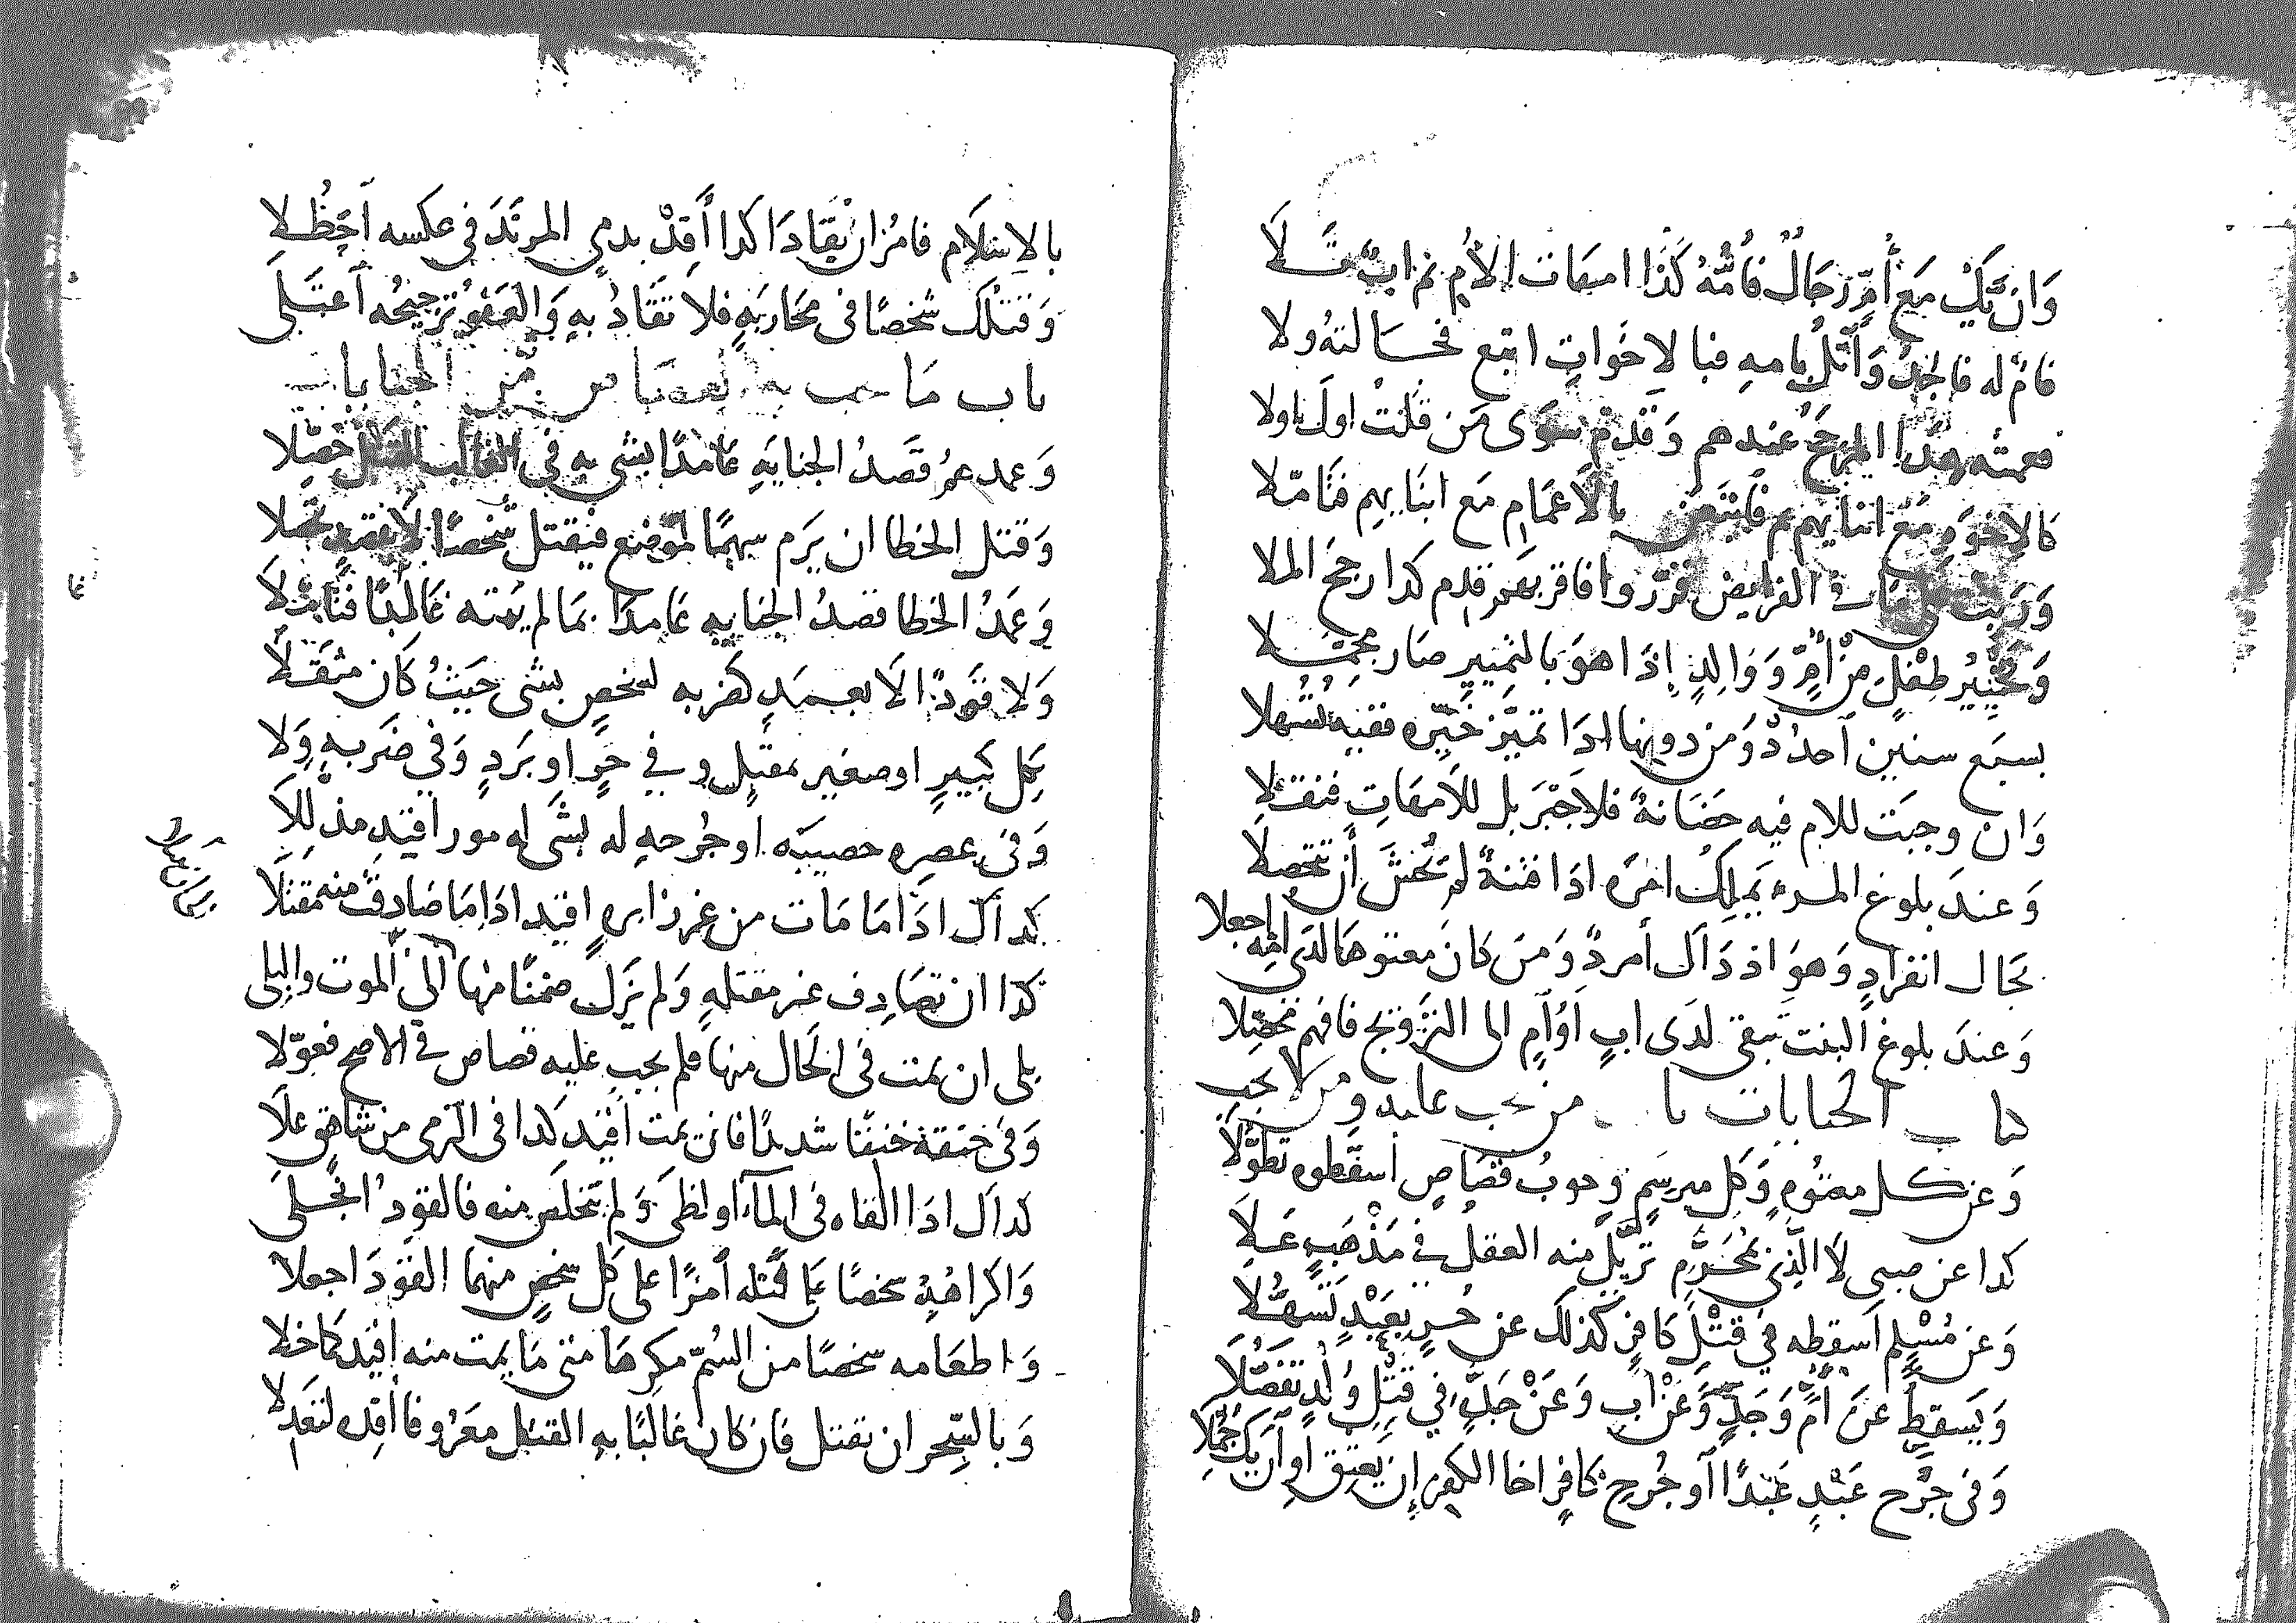 وَان تَكُ مَع أُمٍّ رجَالٌ فَأُمُّهُ كَذَا امهات الأُم ثم ابٌ تَلَا
فام له فالجد وَأُمٌّ بامهِ فبالاخَواتِ اتبع فخالته ولا
فعمته هذا المرجح عندهم وَقدم سوَى مَن قلتُ اولَ باولا
كالاخوةِ مَع ابنايهم بالأعمَامِ مَع ابنَايهم فتَامّلا
في الفرايض قرّروا فاقربهم قدم كدا رجح الملا
وَتخْيِيرُ طِفْلٍ مِنْ أُمٍّ وَوَالِدٍ إِذَا هوَ بالتمييزِ صَار مجمّلا
بسبع سنين أحدد وَمن دونها ادا تميّز خيّره ففيه تسهلا
وَان وجبَت للام فيه حَضَانةٌ فلاَ جَبْرَ بل للأمهَاتِ فنقلا
وَعندَ بلوغ المرء يَملك امرَه ادا فتنةٌ لم تُخشَ أن تتحصلا
بحَال انفرادٍ وَهوَ اذ ذَاك أمردٌ وَمَن كانَ معتوهًا لدَى امّه اجعلا
وَعندَ بلوغ البنت تبقى لدَى ابٍ اوُ أمٍ الى التزويج فافهم محصّلا
كتاب الجنايات باب من يجب عليه ومن لا يجب
وَعن كل معتُوهٍ وَكل مبرسَمٍ وجوبُ قصَاصٍ أسقطوه تطوّلا
كدا عن صبي لَا الَّذِي بمُحَرَّمٍ تزيّلَ منه العقل في مَذْهَبٍ عَلاَ
وَعن مُسْلِمٍ اَسقطه في قتْلِ كافرٍ كذلك عن حُرٍ بعَبْدٍ تَسَهَّلا
وَيَسقط عَن أُمٍّ وَجَدٍّ وَعَنْ ابٍ وَعَنْ جَدَّةٍ في قتْلِ وُلْدٍ تفَضّلَا
وَفى جُرْحِ عَبْدٍ عَبْدًا أو جُرحِ كافرٍ اخا الكفر إن يَعتق اوان يك جُمّلا
بالاسْلَام فامُرْ ان يُقَادَا كدا أَقِدْ بدمي المرتَدَ في عكسه اَحْظُلا
وَقتلك شخصًا في محَاربَةٍ فلا تقَادُ بهِ وَالعَفوُ ترجيحُه اعتَلى
باب مَا يجب به القصاص من الجنايات
وَعمد عمُ قَصدُ الجنايَهِ عَامدًا بشي بهِ في الغالب القتل حَصّلا
وَقتل الخطا ان يَرَم سهمًا لموْضِع فيَقتل شخصًا لا يقصد تحملا
وَعَمدُ الخطا قصدُ الجنايهِ عَامدًا بمَا لم يمته غَالبًا فتَامّلَا
وَلا قوَدًا الَا بعمدٍ كضربه لشخصٍ بشي حَيثُ كَان مثقلَا
بكل كَبيرٍ او صغير بمقتَلٍ وفي حَرٍ او بَردٍ وَفي ضَربهِ ولَا
وَفى عصرِه خصيَيْه او جُرحهِ له بشَى له مور اقيد مذللَا
كداك ادَا مَا مَات من غرز ابرةٍ اقيد ادَا مَا صَادفَت منه مَقتلَا
كذا ان تصَادِف غير مقتلهِ وَلم يَزل ضمنًا منها الى الموت والبلى
بلى ان يمت فى الحَال منها فلم يجب عليه قصاص في الاصح فعوّلا
وَفى خنقهِ خنقًا شديدًا فان يمت اُقيد كدا في الرّمي من شاهقٍ علَا
كداك ادَا القاه في المآء او لظىً وَلم يتخلص منه فالقودُ انجلى
وَاكراهُهُ شخصًا عَلى قتله اَمْرًا على كل شخصٍ منهما القوَدَ اجعلا
وَاطعَامه شخصًا من السُمّ مكرِهًا متى مَا يمت منه اُقيد كمَا خلا
وَبالسِّحر ان يقتل فان كان غَالبًا بهِ القتل معرُوفا أقِده لتعدلا